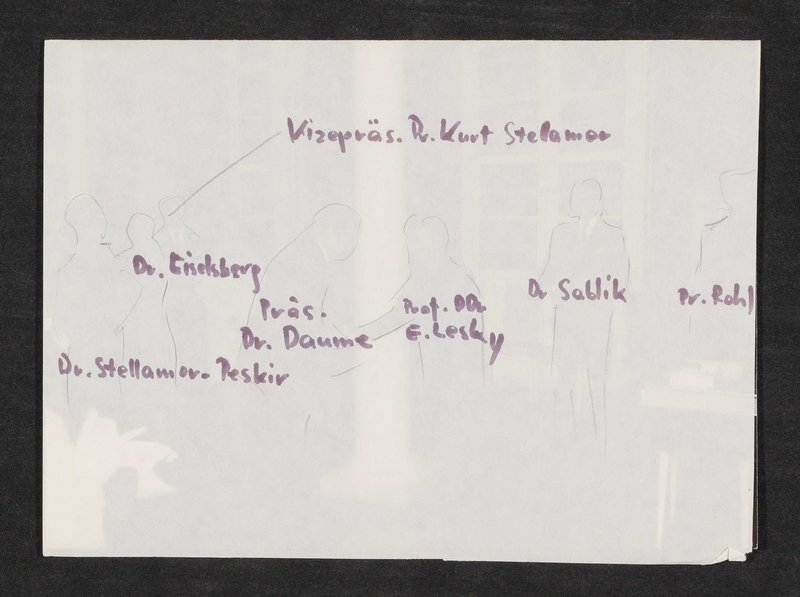 Vizepräs. Dr. Kurt Stellamor
Dr. Eiselsberg
Präs.
Dr. Daume
Prof. DDr
E. Lesky
Dr Sablik
Dr. Rohl
Dr. Stellamor-Peskir